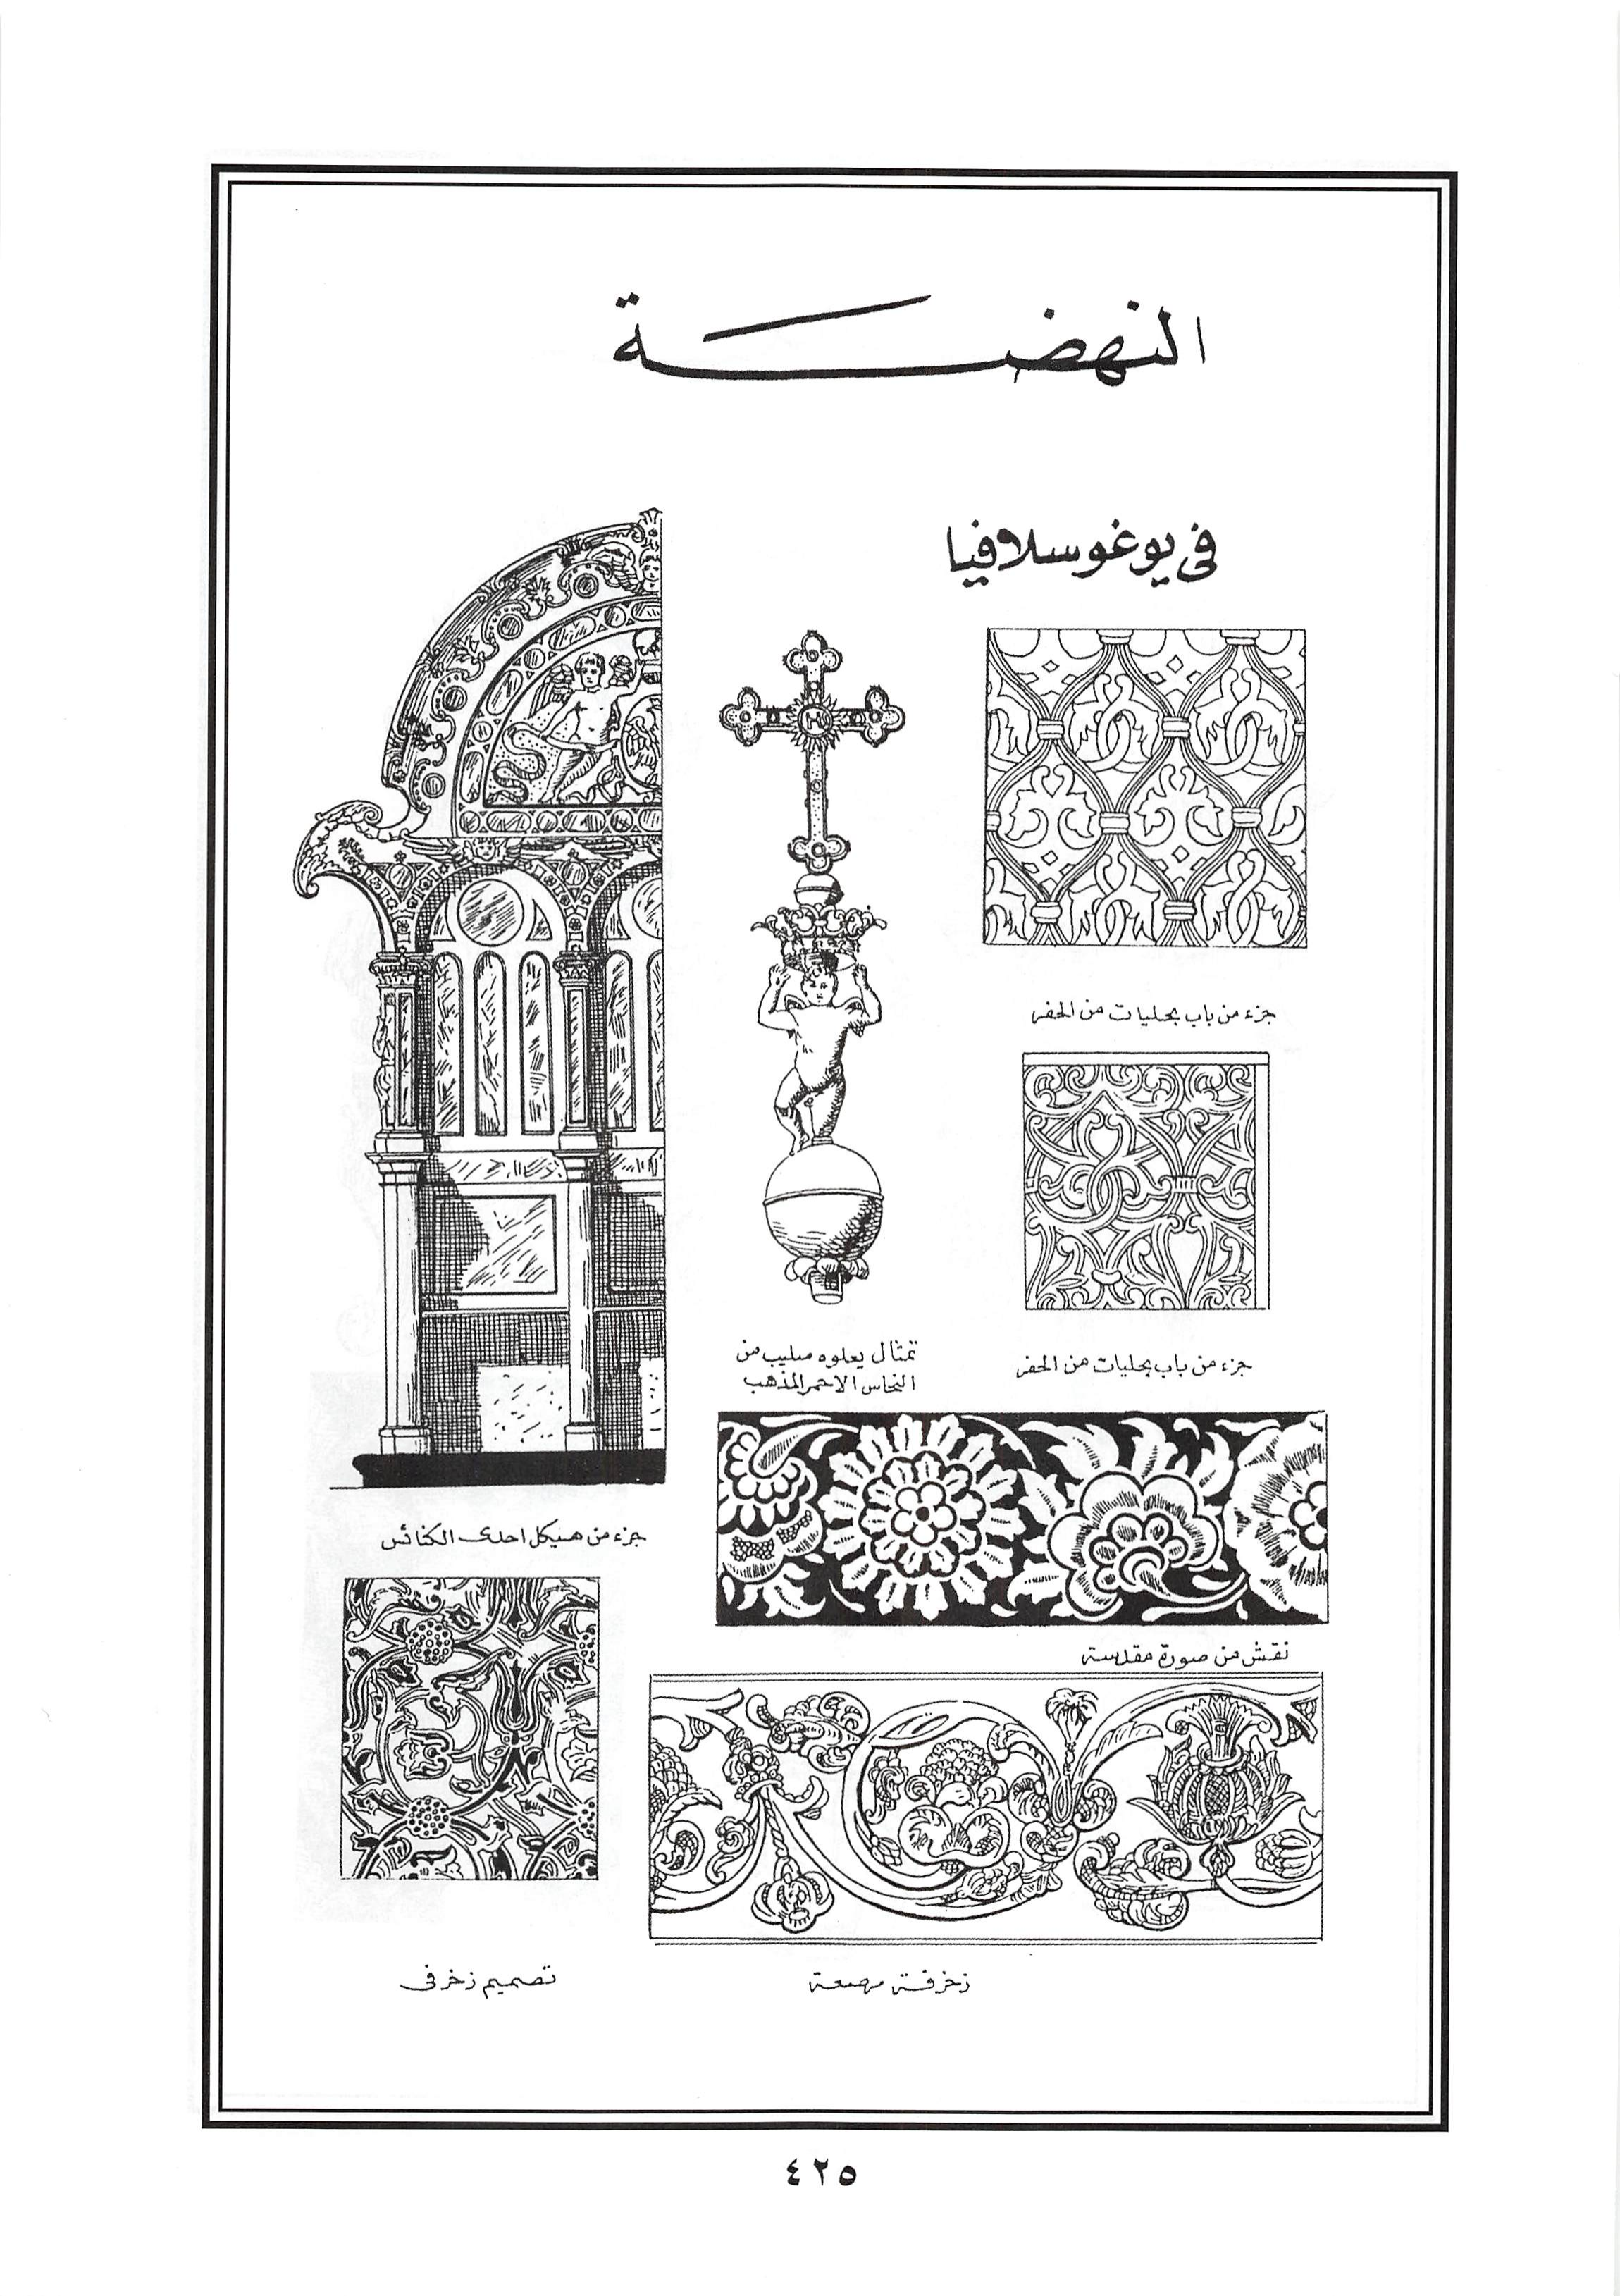 النهضة
في يوغوسلافيا
جزء من باب بحليات من الحفر
جزء من باب بحليات من الحفر
تمثال يعلوه صليب من
النحاس الاحمر المذهب
جزء من هيكل احدى الكنائس
نقش من صورة مقدسة
زخرفة
تصميم زخرفى
٤٢٥